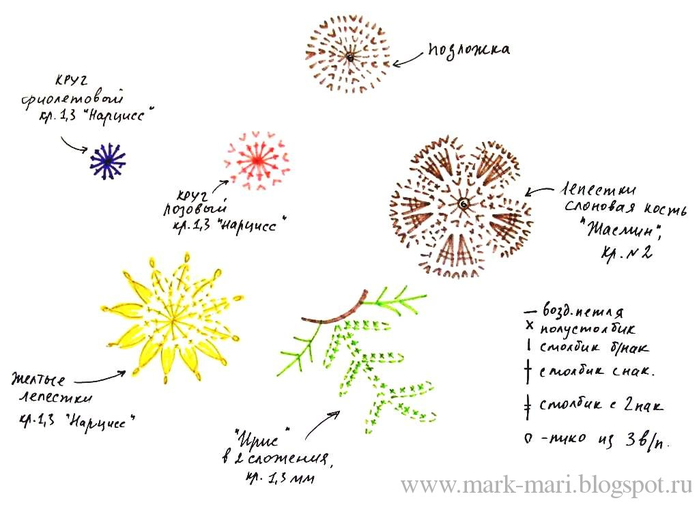 подложка
круг
фиолетовый
кр. 1,3 "Нарцисс"
круг
розовый
кр. 1,3 "Нарцисс"
лепестки
слоновая кость
"Жасмин",
кр. №2
Желтые
лепестки
кр. 1,3 "Нарцисс"
"Ирис"
в 2 сложения,
кр. 1,3 мм
— возд. петля
x полустолбик
столбик б/нак
столбик с нак.
столбик с 2 нак
- пико из 3 в/п.
www.mark-mari.blogspot.ru